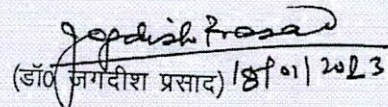 Jagdish Prasad
(डॉ0 जगदीश प्रसाद) 18/01/2023